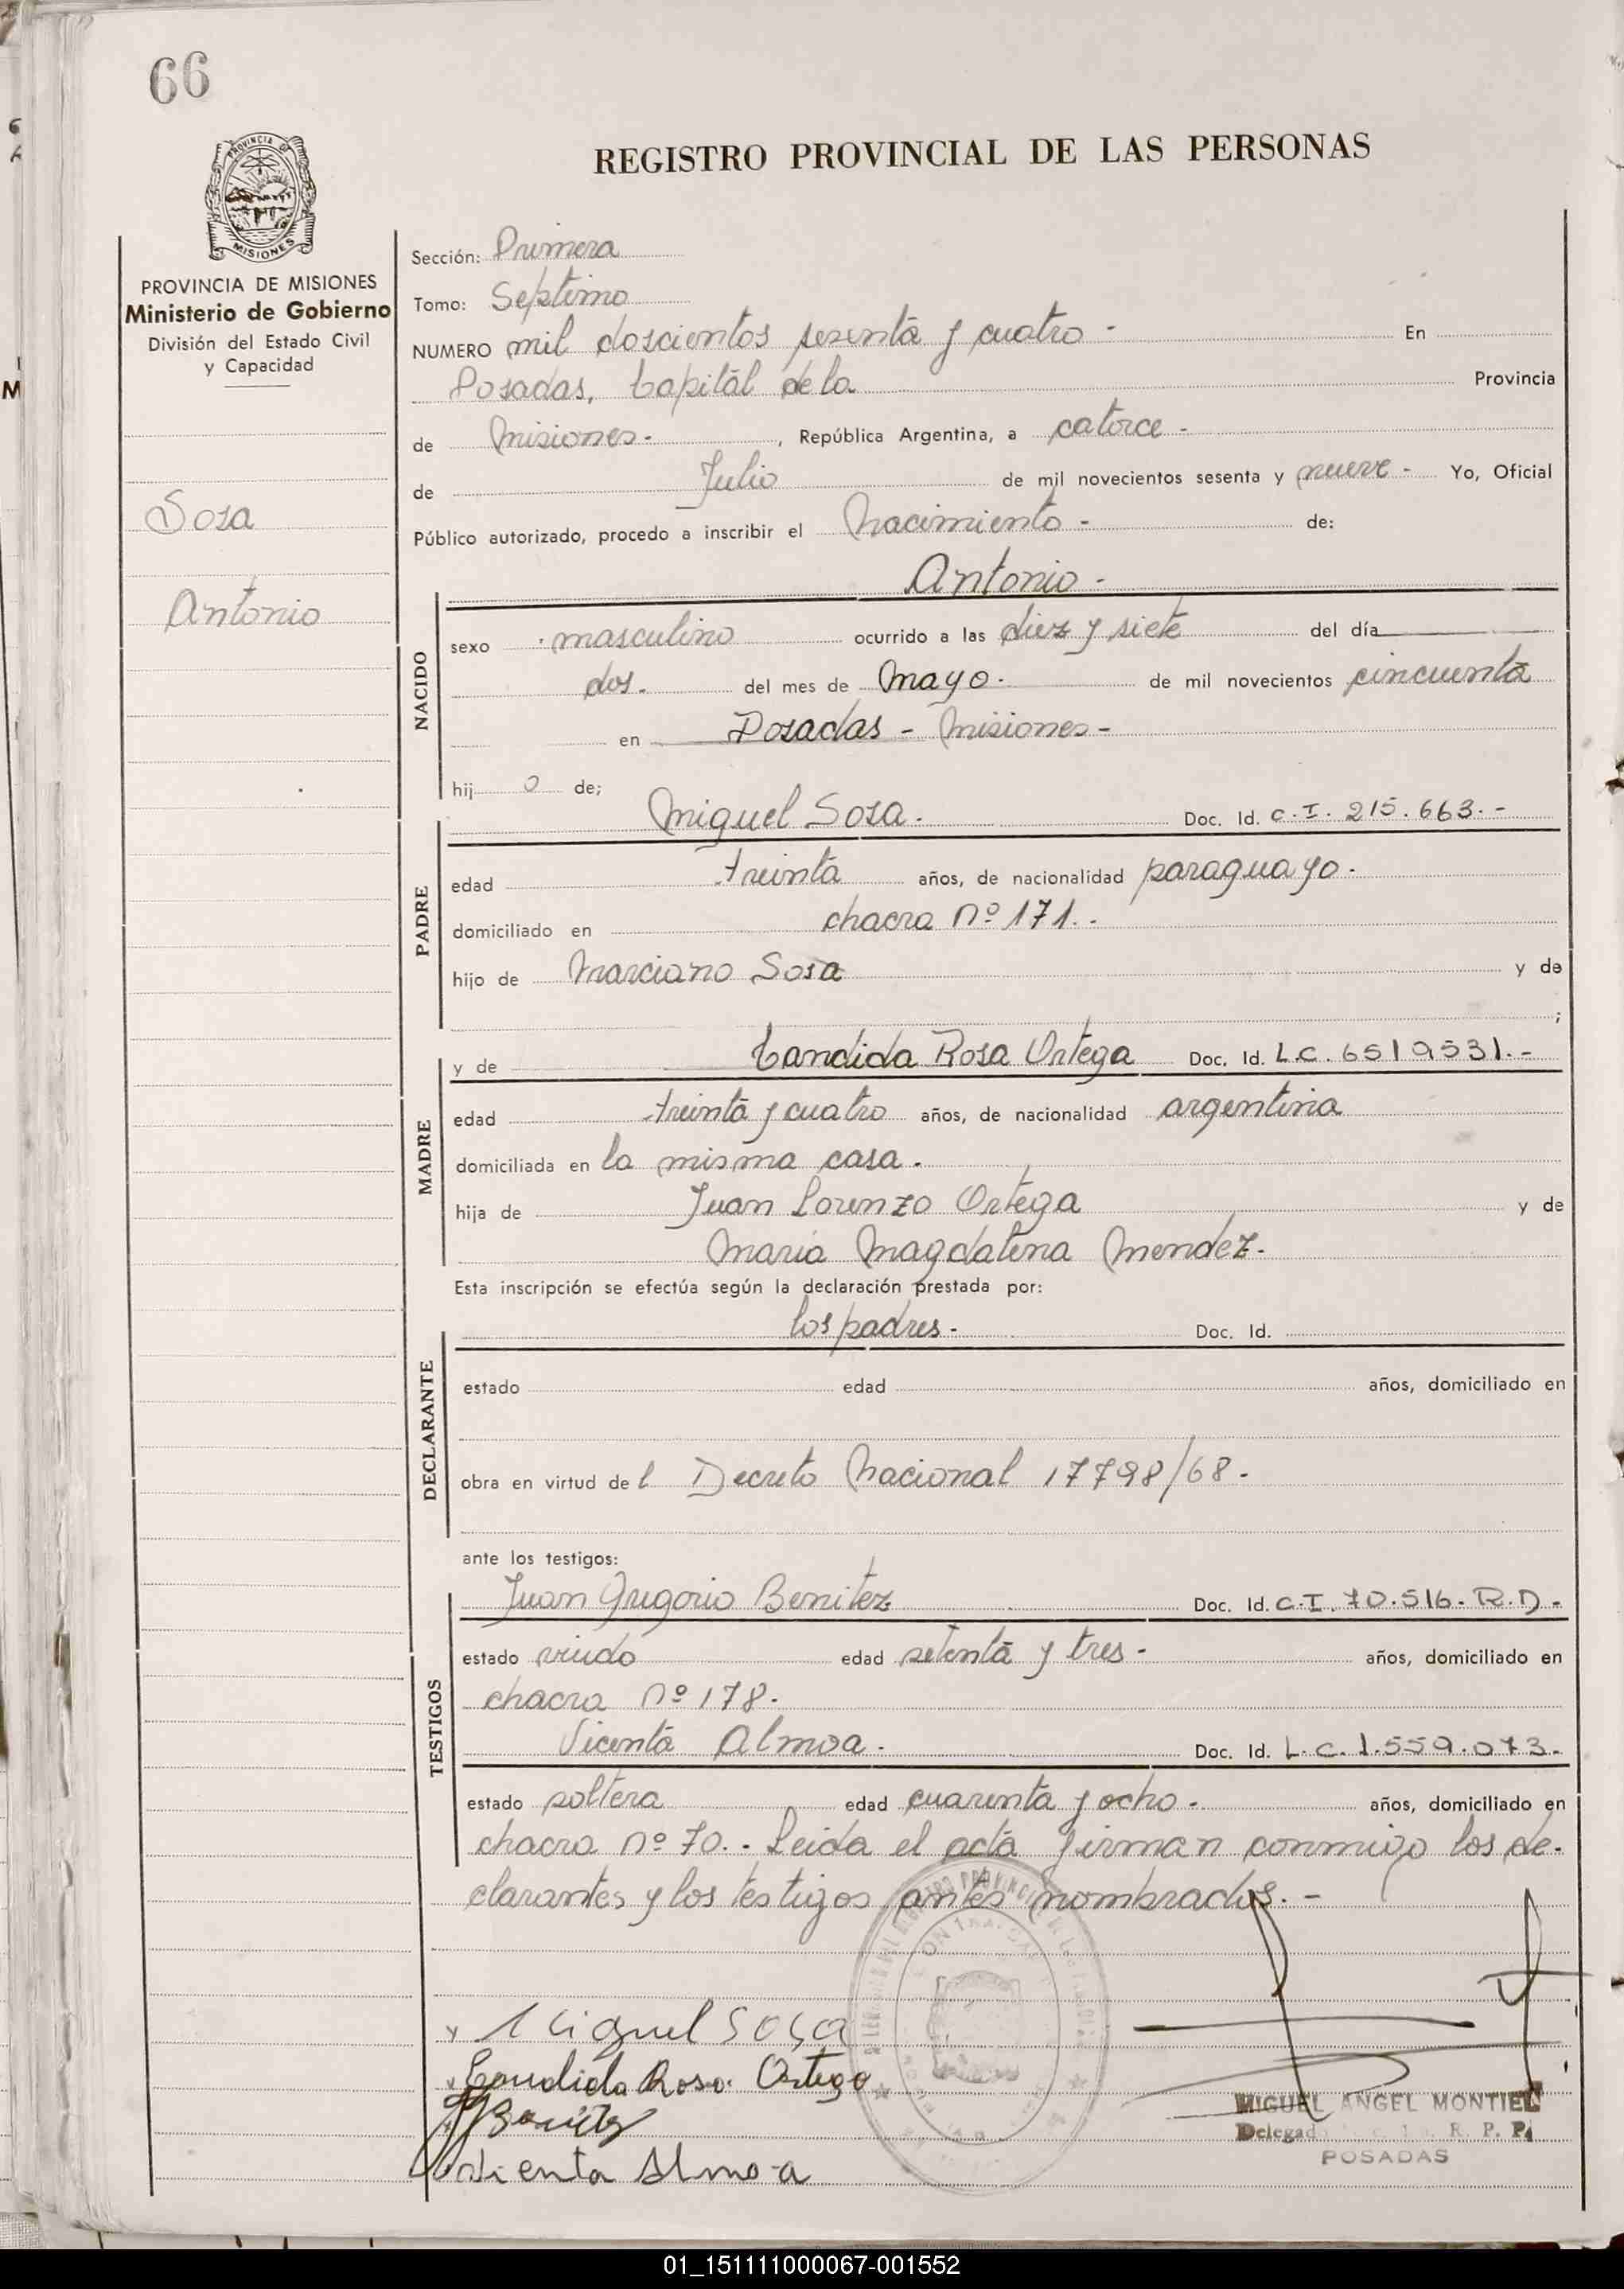 66
REGISTRO PROVINCIAL DE LAS PERSONAS
PROVINCIA DE MISIONES
Ministerio de Gobierno
División del Estado Civil
y Capacidad
Sosa
Antonio
Sección: Primera
Tomo: Septimo
NUMERO mil doscientos sesenta y cuatro - En
Posadas, Capital de la Provincia
de Misiones - , República Argentina, a catorce -
de Julio de mil novecientos sesenta y nueve - Yo, Oficial
Público autorizado, procedo a inscribir el Nacimiento - de:
Antonio -
NACIDO
sexo masculino ocurrido a las diez y siete del día
dos. del mes de Mayo. de mil novecientos cincuenta
en Posadas - Misiones -
hij o de;
PADRE
Miguel Sosa. Doc. Id. C.I. 215.663.-
edad treinta años, de nacionalidad paraguayo.
domiciliado en chacra Nº 171.-
hijo de Marciano Sosa y de
;
MADRE
y de Candida Rosa Ortega Doc. Id. L.C. 6519531.-
edad treinta y cuatro años, de nacionalidad argentina
domiciliada en la misma casa.
hija de Juan Lorenzo Ortega y de
Maria Magdalena Mendez.
Esta inscripción se efectúa según la declaración prestada por:
DECLARANTE
los padres - Doc. Id.
estado edad años, domiciliado en
obra en virtud de l Decreto Nacional 17798/68-
ante los testigos:
TESTIGOS
Juan Gregorio Benitez Doc. Id. C.I. 70.516- R.D.-
estado viudo edad setenta y tres - años, domiciliado en
chacra Nº 178.
Vicenta Almoa. Doc. Id. L.C. 1.559.073.-
estado soltera edad cuarenta y ocho - años, domiciliado en
chacra Nº 70.- Leida el acta firman conmigo los de-
clarantes y los testigos antes nombrados. -
x Miguel Sosa
x Candida Rosa Ortega
JGBenitez
Vicenta Almoa
MIGUEL ANGEL MONTIEL
Delegad R. P. P.
POSADAS
01_151111000067-001552